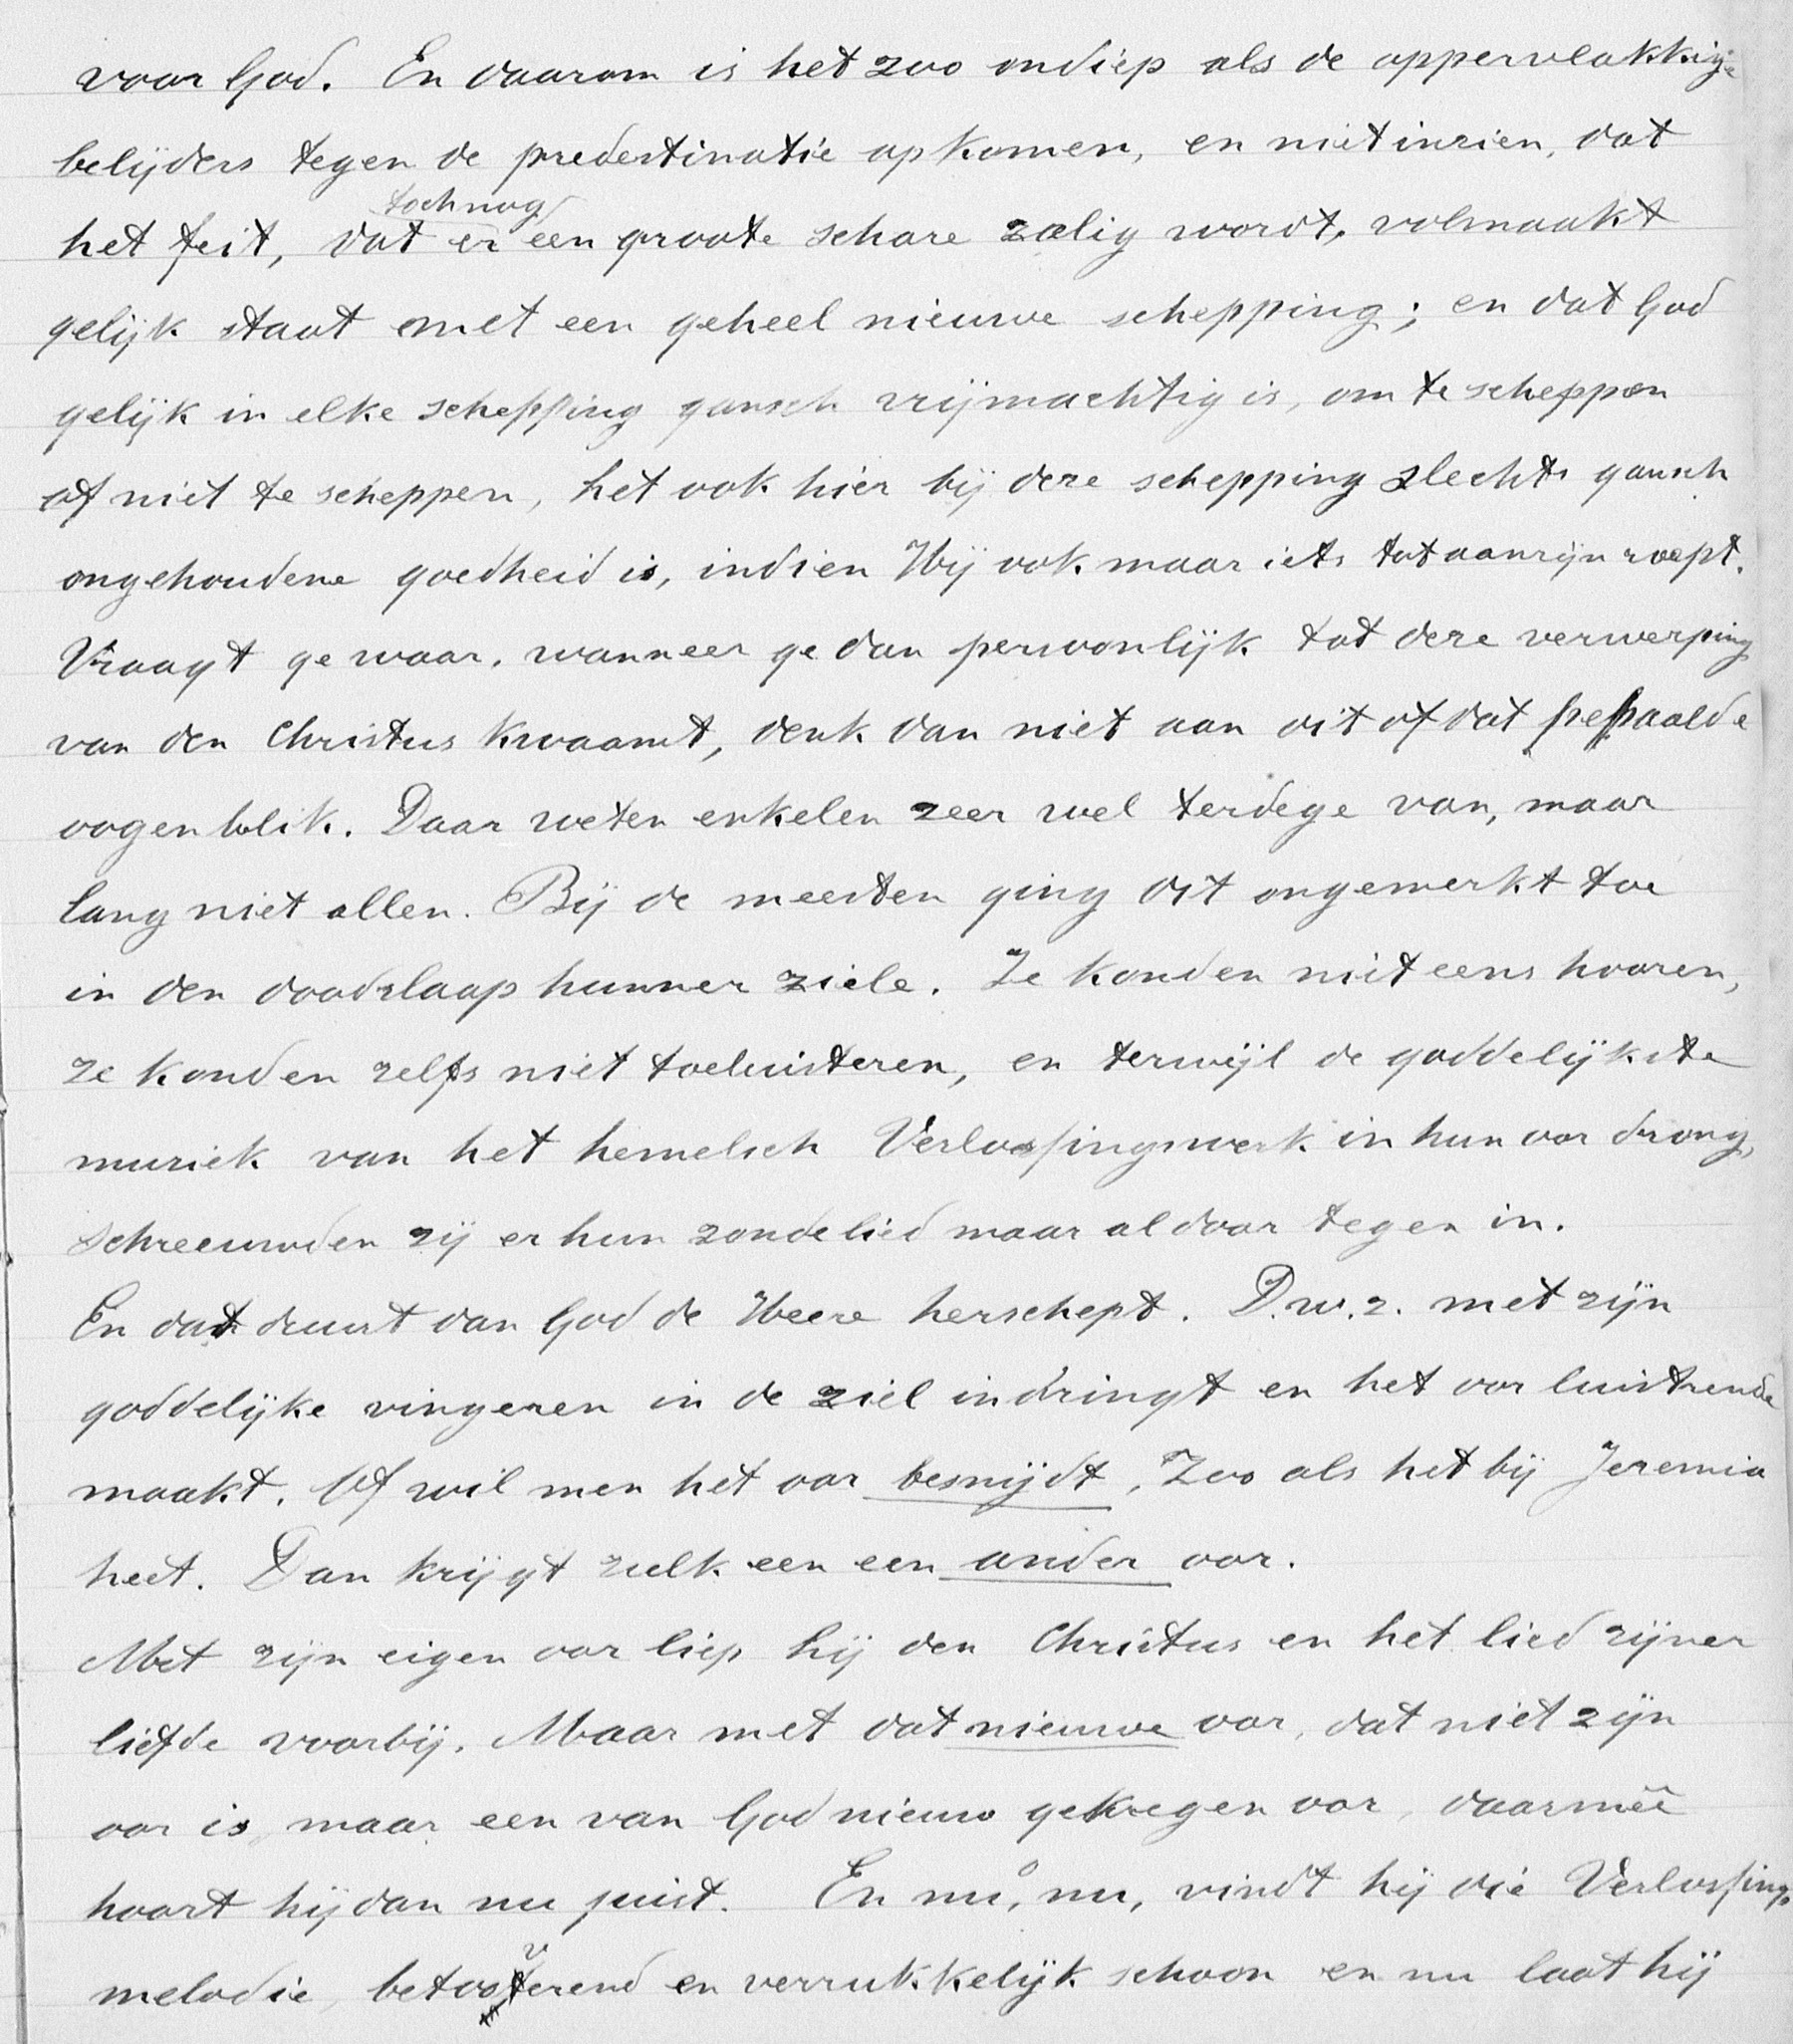 voor God. En daarom is het zoo ondiep als de oppervlakkige
belijders tegen de predestinatie opkomen, en niet inzien, dat
toch nog
het feit, dat er een groote schare zalig wordt, volmaakt
gelijk staat met een geheel nieuwe schepping; en dat God
gelijk in elke schepping gansch vrijmachtig is, om te scheppen
of niet te scheppen, het ook hier bij deze schepping slechts gansch
ongehoudene goedheid is, indien Hij ook maar iets tot aanzijn roept.
Vraagt ge waar, wanneer ge dan persoonlijk tot deze verwerping
van den Christus kwaamt, denk dan niet aan dit of dat bepaalde
oogenblik. Daar weten enkelen zeer wel terdege van, maar
lang niet allen. Bij de meesten ging dit ongemerkt toe
in den doodslaap hunner ziele. Ze konden niet eens hooren,
ze konden zelfs niet toeluisteren, en terwijl de goddelijkste
muziek van het hemelsch Verlossingswerk in hun oor drong,
schreeuwden zij er hun zondelied maar al door tegen in.
En dat duurt dan God de Heere herschept. D.w.z. met zijn
goddelijke vingeren in de ziel indringt en het oor luistrende
maakt. Of wil men het oor besnijdt, Zoo als het bij Jeremia
heet. Dan krijgt zulk een een ander oor.
Met zijn eigen oor liep hij den Christus en het lied zijner
liefde voorbij. Maar met dat nieuwe oor, dat niet zijn
oor is, maar een van God nieuw gekregen oor, daarmeê
hoort hij dan nu juist. En nu, nu, vindt hij die Verlossings
melodie, betooverend en verrukkelijk schoon en nu laat hij